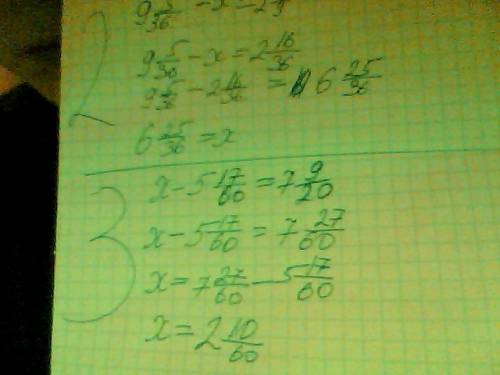 2
9 5/36 - x = 2
9 5/36 - x = 2 16/36
9 5/36 - 2 16/36 = 6 25/36
6 25/36 = x
3
x - 5 17/60 = 7 9/20
x - 5 17/60 = 7 27/60
x = 7 27/60 - 5 17/60
x = 2 10/60